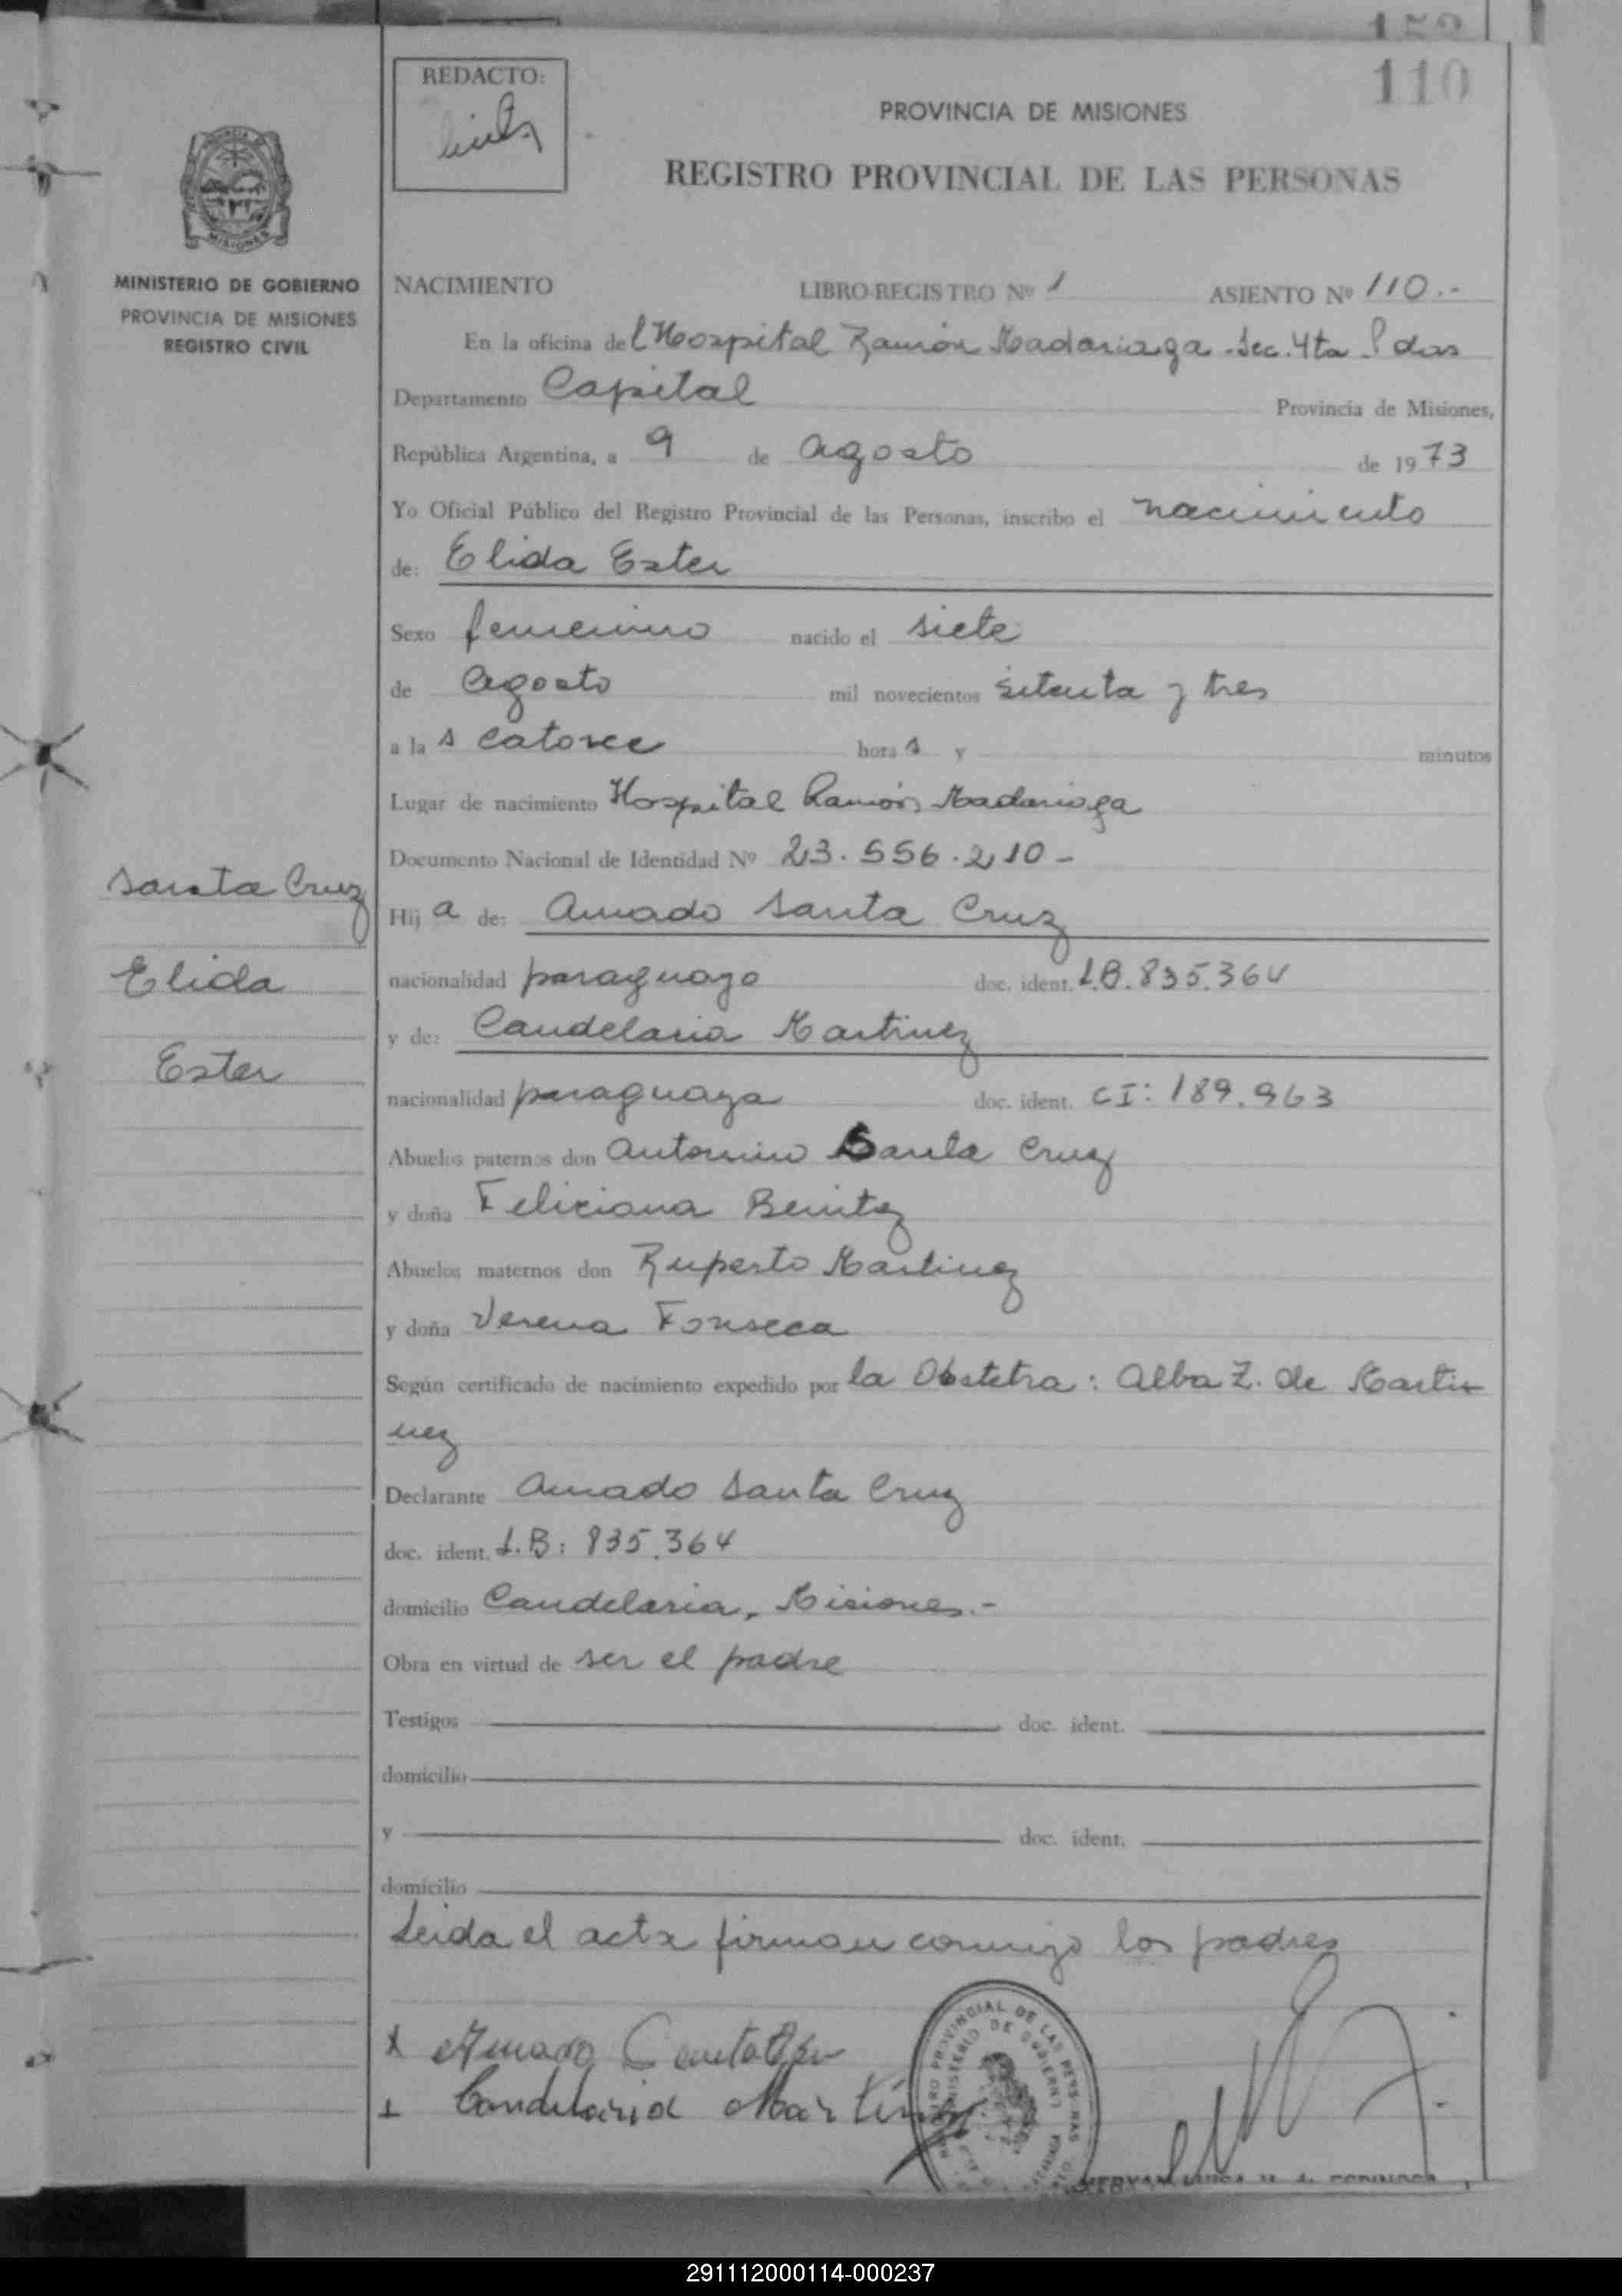 110
REDACTO:
PROVINCIA DE MISIONES
REGISTRO PROVINCIAL DE LAS PERSONAS
MISIONES
MINISTERIO DE GOBIERNO
PROVINCIA DE MISIONES
REGISTRO CIVIL
NACIMIENTO LIBRO REGISTRO Nº 1 ASIENTO Nº 110.-
En la oficina del Hospital Ramón Madariaga - Sec. 4ta Pdas
Departamento Capital Provincia de Misiones,
República Argentina, a 9 de agosto de 1973
Yo Oficial Público del Registro Provincial de las Personas, inscribo el nacimiento
de: Elida Ester
Sexo femenino nacido el siete
de agosto mil novecientos setenta y tres
a la s catorce hora s y minutos
Lugar de nacimiento Hospital Ramón Madariaga
Documento Nacional de Identidad Nº 23.556.210-
Santa Cruz
Elida
Ester
Hij a de: Amado Santa Cruz
nacionalidad paraguayo doc. ident. L.B. 835.364
y de: Candelaria Martinez
nacionalidad paraguaya doc. ident. CI: 189.963
Abuelos paternos don Antonino Santa Cruz
y doña Feliciana Benitez
Abuelos maternos don Ruperto Martinez
y doña Verena Fonseca
Según certificado de nacimiento expedido por la Obstetra: Alba Z. de Marti-
nez
Declarante Amado Santa Cruz
doc. ident. L.B: 835.364
domicilio Candelaria, Misiones.-
Obra en virtud de ser el padre
Testigos doc. ident.
domicilio
y doc. ident.
domicilio
Leida el acta firman conmigo los padres
x Amado Santa Cruz
x Candelaria Martínez
291112000114-000237